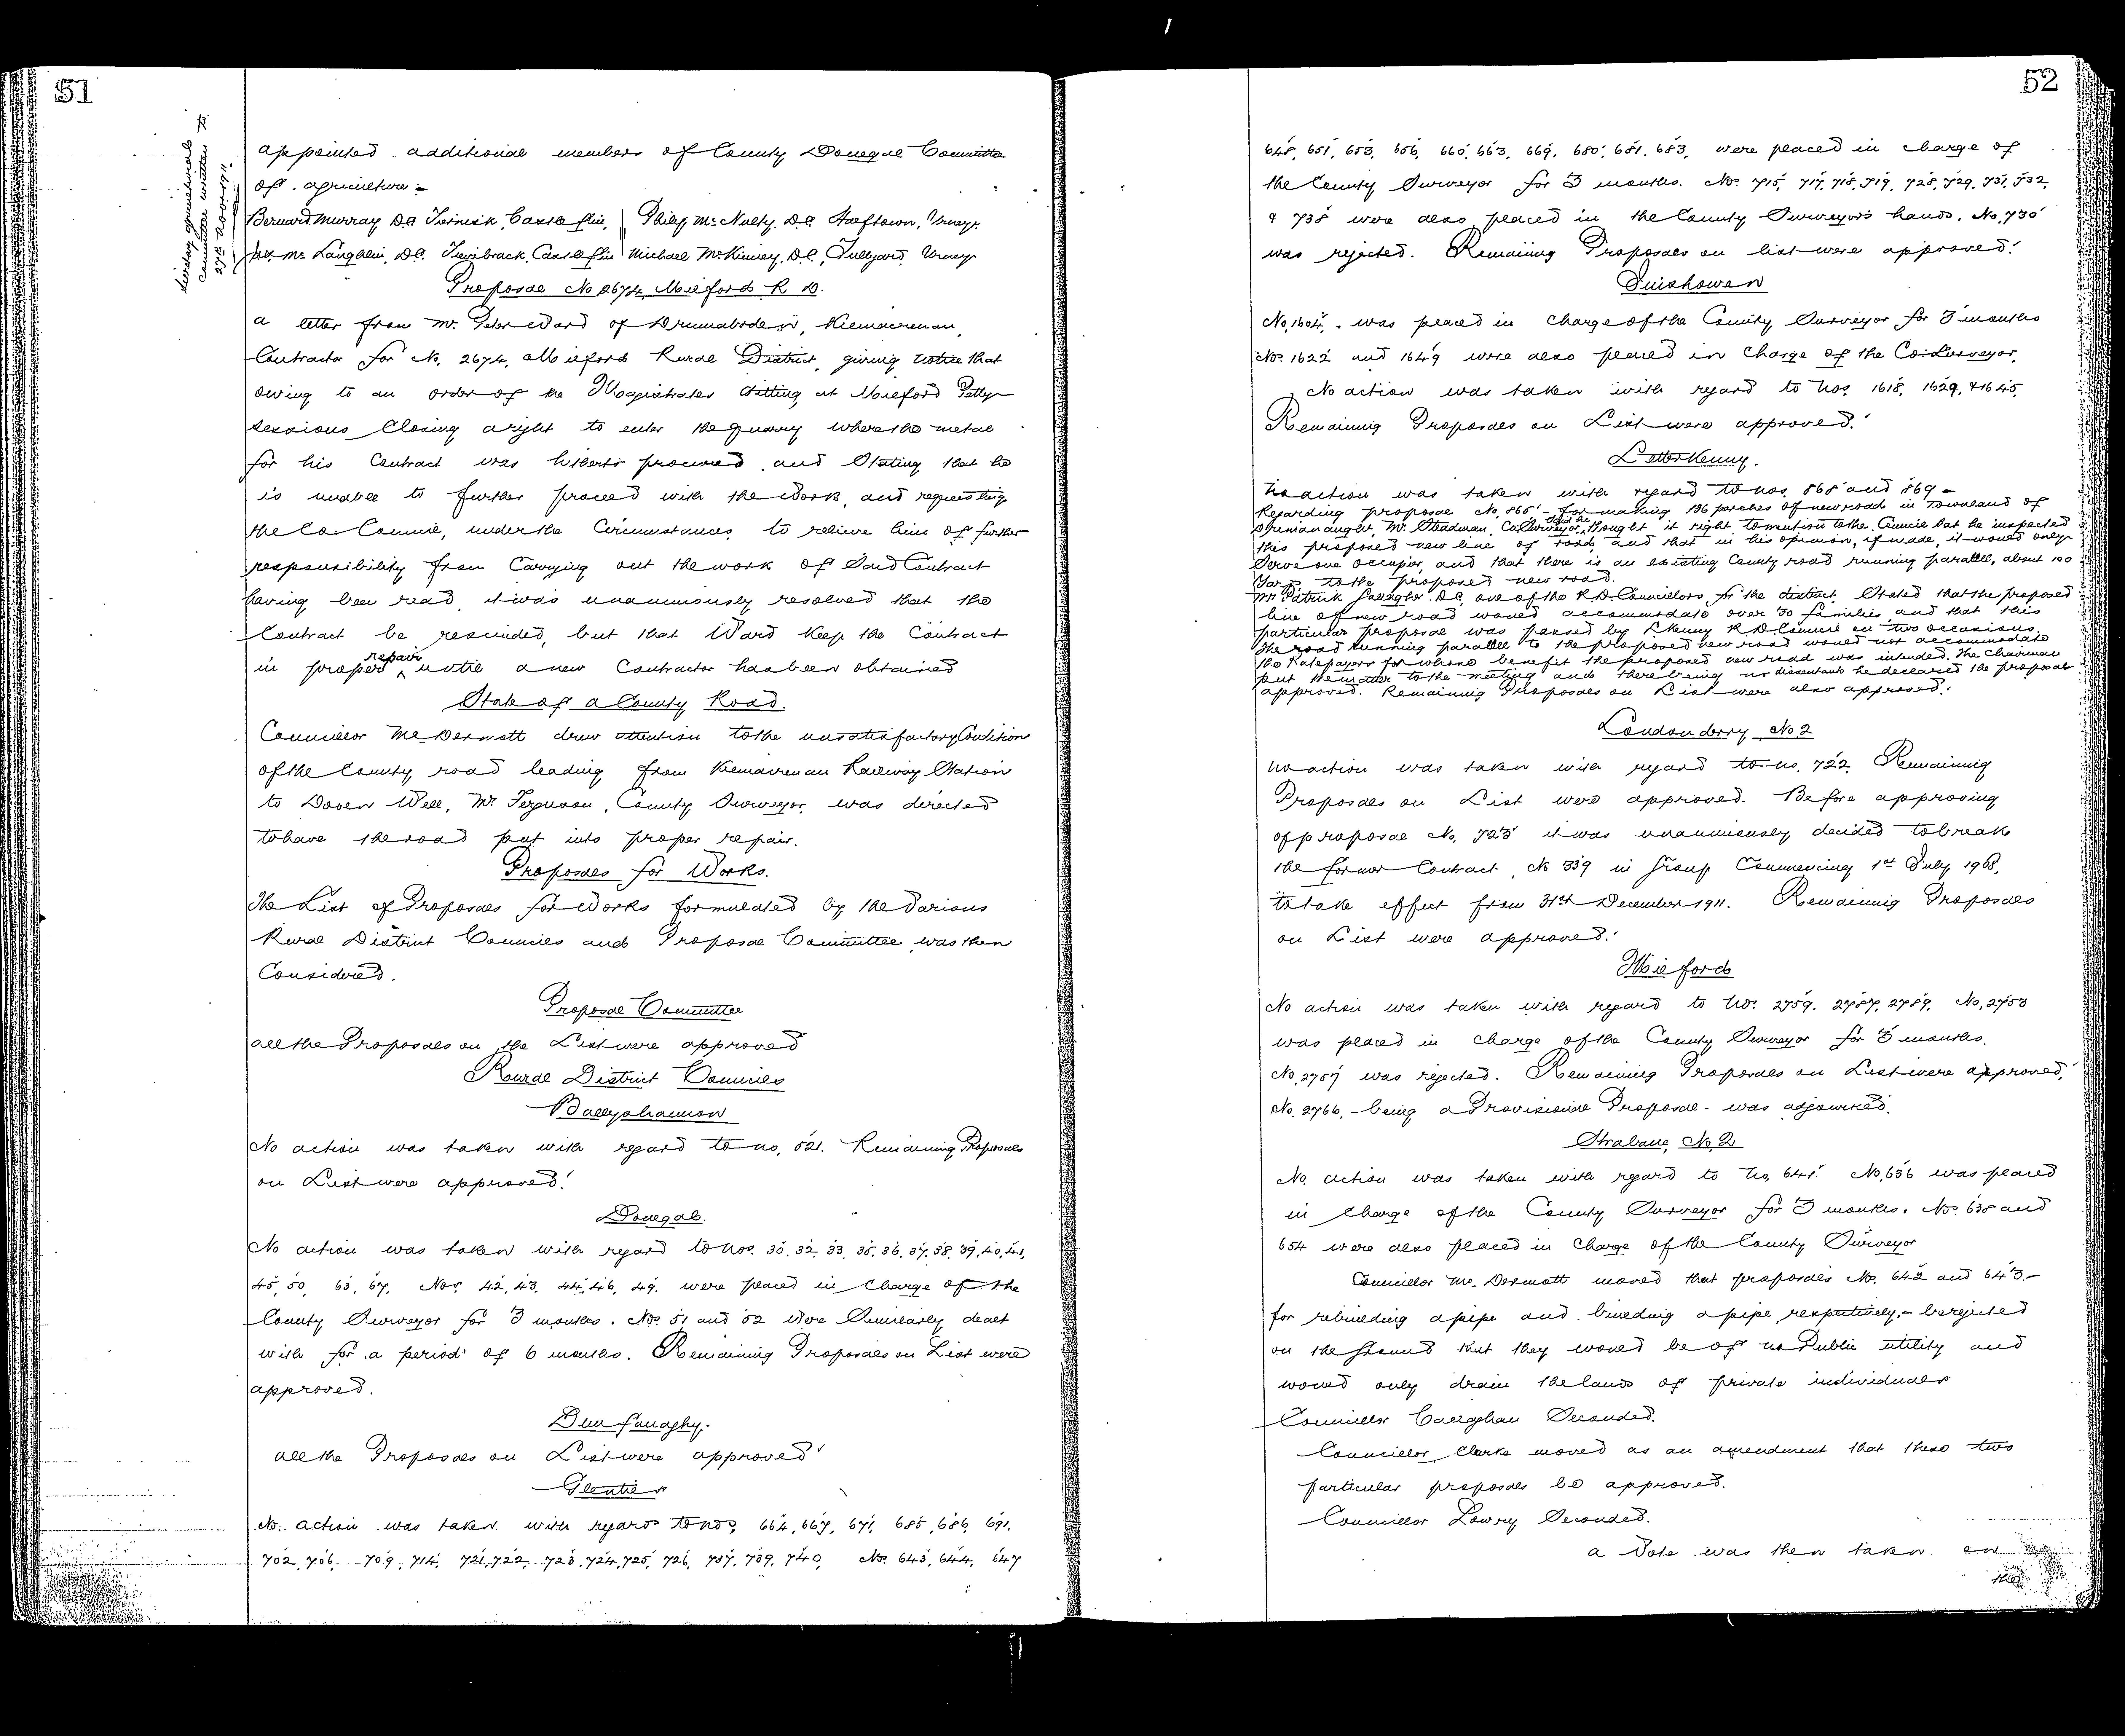 51
Secretary Agricultural
Committee written to
27th Novr 1911.
appointed additional members of County Donegal Committee
of Agriculture:-
Bernard Murray D.C. Castlefin, Philip McNulty D.C. Urney.
McLaughlin, D.C. Castlefin Michael McKinney, D.C., Tullyard, Urney
Proposal No 2674 Milford R D.
A letter from Mr. Peter Ward of Drumabodan, Kilmacrenan,
Contractor for No. 2674, Milford Rural District, giving notice that
owing to an order of the Magistrates sitting at Milford Petty
Sessions closing a right to enter the quarry where the metal
for his Contract was hitherto procured, and stating that he
is unable to further proceed with the work, and requesting
the Co. Council, under the Circumstances, to relieve him of further
responsibility from Carrying out the work of said Contract
having been read, it was unanimously resolved that the
Contract be rescinded, but that Ward keep the Contract
in proper repair until a new Contractor has been obtained
State of a County Road.
Councillor McDermott drew attention to the unsatisfactory Condition
of the County road leading from Kilmacrenan Railway Station
to Doon Well, Mr Ferguson, County Surveyor, was directed
to have the road put into proper repair.
Proposals for Works.
The List of Proposals for Works formulated by the Various
Rural District Councils and Proposal Committee was then
Considered.
Proposal Committee
All the Proposals on the List were approved
Rural District Councils
Ballyshannon
No action was taken with regard to no. 521. Remaining Proposals
on List were approved.
Donegal.
No action was taken with regard to nos. 30, 32, 33, 35, 36, 37, 38, 39, 40, 41,
45, 50, 63, 67, Nos. 42, 43, 44, 46, 49, were placed in Charge of the
County Surveyor for 3 months. Nos. 51 and 52 were Similarly dealt
with for a period of 6 months. Remaining Proposals on List were
approved.
Dunfanaghy.
All the Proposals on List were approved
Glenties
No action was taken with regard to nos, 664, 667, 671, 685, 686, 691,
702, 706, 709, 714, 721, 722, 723, 724, 725, 726, 737, 739, 740, Nos. 643, 644, 647
52
648, 651, 653, 656, 660, 663, 669, 680, 681, 683, were placed in charge of
the County Surveyor for 3 months. Nos. 715, 717, 718, 719, 728, 729, 731, 732,
& 738 were also placed in the County Surveyor's hands. No. 730
was rejected. Remaining Proposals on list were approved.
Inishowen
No. 1604, was placed in charge of the County Surveyor for 3 months
Nos. 1622 and 1649 were also placed in Charge of the Co. Surveyor.
No action was taken with regard to nos. 1618, 1629, & 1645,
Remaining Proposals on List were approved.
Letterkenny.
No action was taken with regard to nos. 868 and 869 -
Regarding proposal No. 865 - for making 186 perches of new road in Townland of
Mr. Steadman, Co. Surveyor, said he thought it right to mention to the Council that he inspected
this proposed new line of road, and that in his opinion, if made, it would only
serve one occupier, and that there is an existing County road running parallel, about 100
yards to the proposed new road.
Mr Patrick Gallagher D.C., one of the R.D. Councillors for the district, stated that the proposed
line of new road would accommodate over 30 families and that this
particular proposal was passed by L'Kenny R D Council on two occasions.
The road running parallel to the proposed new road would not accommodate
the Ratepayers for whose benefit the proposed new road was intended. The Chairman
put the matter to the meeting and there being no dissentients he declared the proposal
approved. Remaining Proposals on List were also approved.
Londonderry No 2
No action was taken with regard to no. 722, Remaining
Proposals on List were approved. Before approving
of proposal No. 723 it was unanimously decided to break
the former Contract, No 339 in Group Commencing 1st July 1908,
to take effect from 31st December 1911. Remaining Proposals
on List were approved.
Milford
No action was taken with regard to Nos. 2759, 2787, 2789, No. 2753
was placed in charge of the County Surveyor for 3 months.
No. 2757 was rejected. Remaining Proposals on List were approved,
No. 2766, - being a Provisional Proposal - was adjourned.
Strabane, No 2
No action was taken with regard to No, 641. No. 636 was placed
in charge of the County Surveyor for 3 months. Nos. 638 and
654 were also placed in Charge of the County Surveyor
Councillor McDermott moved that proposals Nos. 642 and 643 -
for rebuilding a pipe and building a pipe respectively, - be rejected
on the ground that they would be of no Public utility and
would only drain the lands of private individuals
Councillor Callaghan Seconded.
Councillor Clarke moved as an amendment that these two
particular proposals be approved.
Councillor Lowry Seconded.
A Vote was then taken on
the